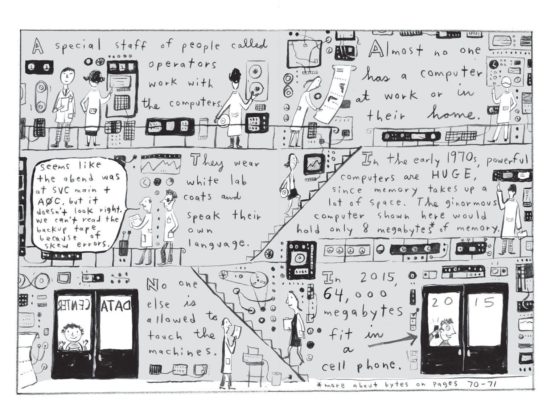 A special staff of people called
operators
work with
the computers.
Almost no one
has a computer
at work or in
their home.
seems like
the abend was
at SVC main +
AØC, but it
doesn't look right.
we can't read the
backup tape
because of
skew errors.
They wear
white lab
coats and
speak their
own
language.
In the early 1970s, powerful
computers are HUGE,
since memory takes up a
lot of space. The ginormous
computer shown here would
hold only 8 megabytes* of memory.
DATA
CENTER
No one
else is
allowed to
touch the
machines.
In 2015,
64,000
megabytes
fit in
a
cell phone.
20 15
*more about bytes on pages 70-71